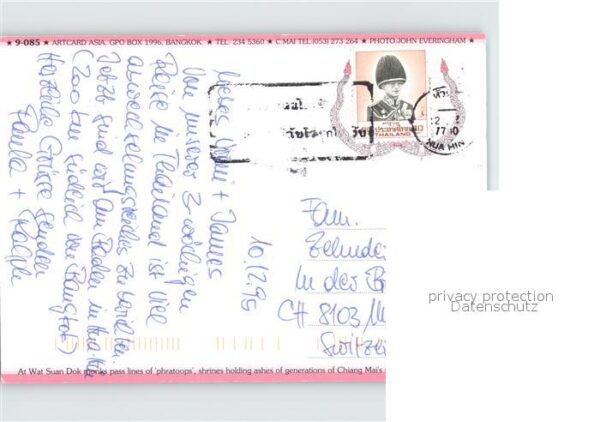 ★ 9-085 ★ ARTCARD ASIA, GPO BOX 1996, BANGKOK. ★ TEL. 234 5360 ★ C.MAI TEL(053) 273 264 ★ PHOTO:JOHN EVERINGHAM ★
ประเทศไทย
THAILAND
HUA HIN
10.12.95
+ James
Von unserer 3-wöchigen
Reise in Thailand ist viel
abwechslungsreiches zu berichten.
Jetzt sind wir am Baden in Hua Hin
(200 km südlich von Bangkok)
Herzliche Grüsse senden
+
Fam.
In der
CH 8103
At Wat Suan Dok monks pass lines of 'phratoops', shrines holding ashes of generations of Chiang Mai's
privacy protection
Datenschutz